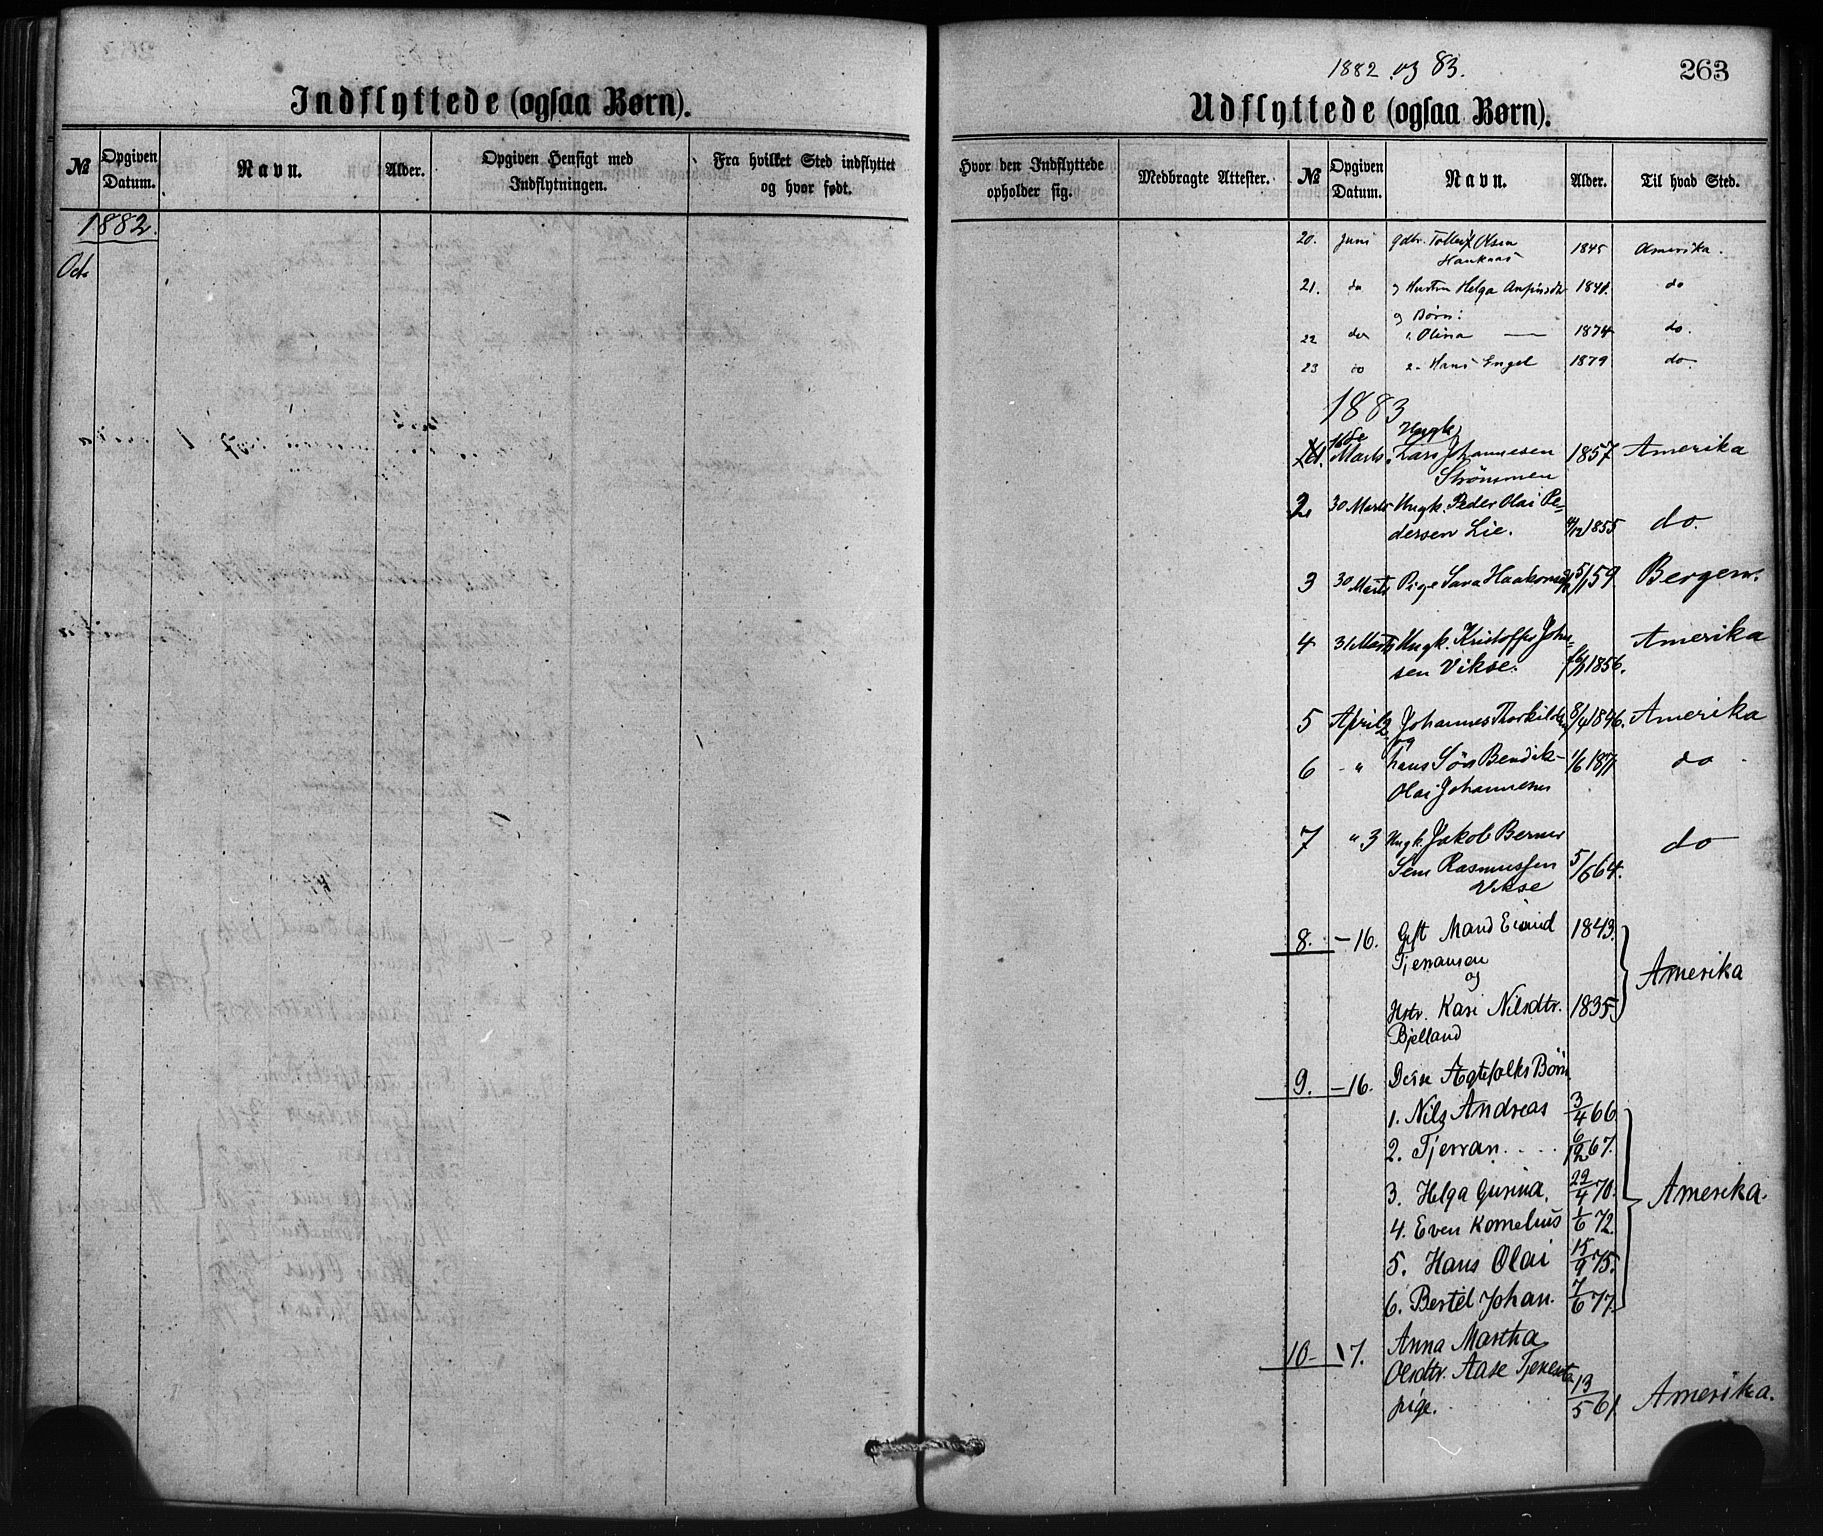 Indflyttede (ogsaa Børn).
№
Opgiven Datum.
Navn.
Alder.
Opgiven Hensigt med Indflytningen.
Fra hvilket Sted indflyttet og hvor født.
1882.
Oct.
1882 og 83.
263
Udflyttede (ogsaa Børn).
Hvor den Indflyttede opholder sig.
Medbragte Attester.
№
Opgiven Datum.
Navn.
Alder.
Til hvad Sted.
20. Juni Gdbr. Tollef Olsen 1845 Amerika.
Haukaas
21. do og Hustru Helga 1840. do
og Børn:
22 do 1. Olina — 1874 do.
23 do 2. Hans Engel 1879 do.
1883
16de Ungk.
1. Marts. Lars Johannesen 1857 Amerika
Strømmen
2. 30 Marts Ungk. Peder Olai Pe-
dersen Lie. 1855 do.
3 30 Marts Pige Sara Haakonsd 5/1 59 Bergen.
4 31 Marts Ungk. Kristoffer John- Amerika
sen Vikse. 1856.
5 April 2 Johannes Thorkilds 8/4 18 6. Amerika
og
6 - " hans Søn Bendik 1/6 1871 do
Olai Johannesen
7 " 3 Ungk. Jakob Berner do
Sem Rasmussen 5/6 64.
Vikse
8. – 16. Gift Mand Eivind 1843.
Tjerransen
og
Amerika
Hstr. Kari Nilsdtr. 1835
Bjelland
9. – 16. Disse Ægtefolks Børn
1. Nils Andreas 3/4 66.
2. Tjerran.... 6/12 67.
3. Helga Gurina. 22/4 70.
Amerika.
4. Even Kornelius 1/6 72.
5. Hans Olai 15/9 75.
6. Bertel Johan. 7/6 77.
10 – 17. Anna Martha
Olsdtr. Aase Tjeneste
pige. 13/5 61. Amerika.